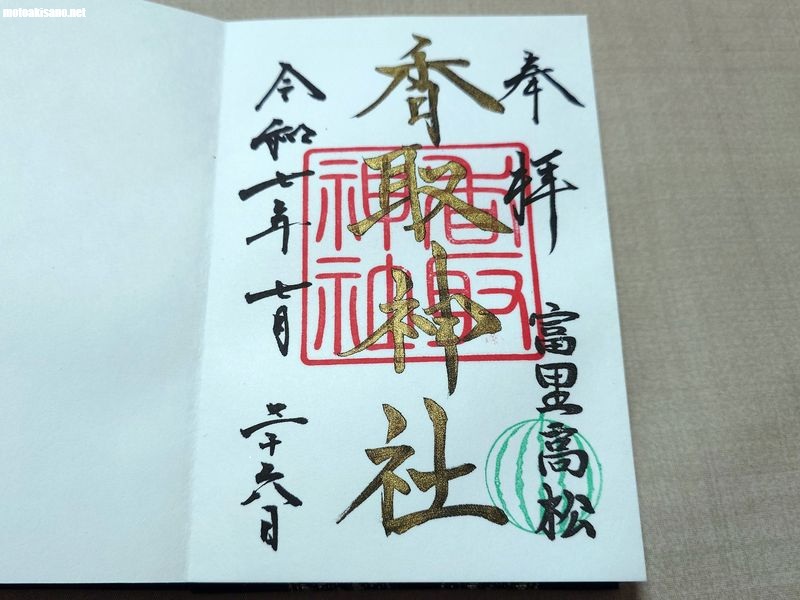 motoakisano.net
奉拝
富里高松
香取神社
香取神社
令和七年七月二十六日